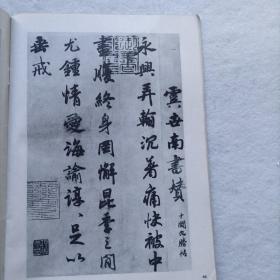 虞世南書贊
十開九勝帖
永興弄翰沉著痛快被中
畫腹終身罔懈昆季之間
尤鍾情愛誨諭諄諄足以
垂戒